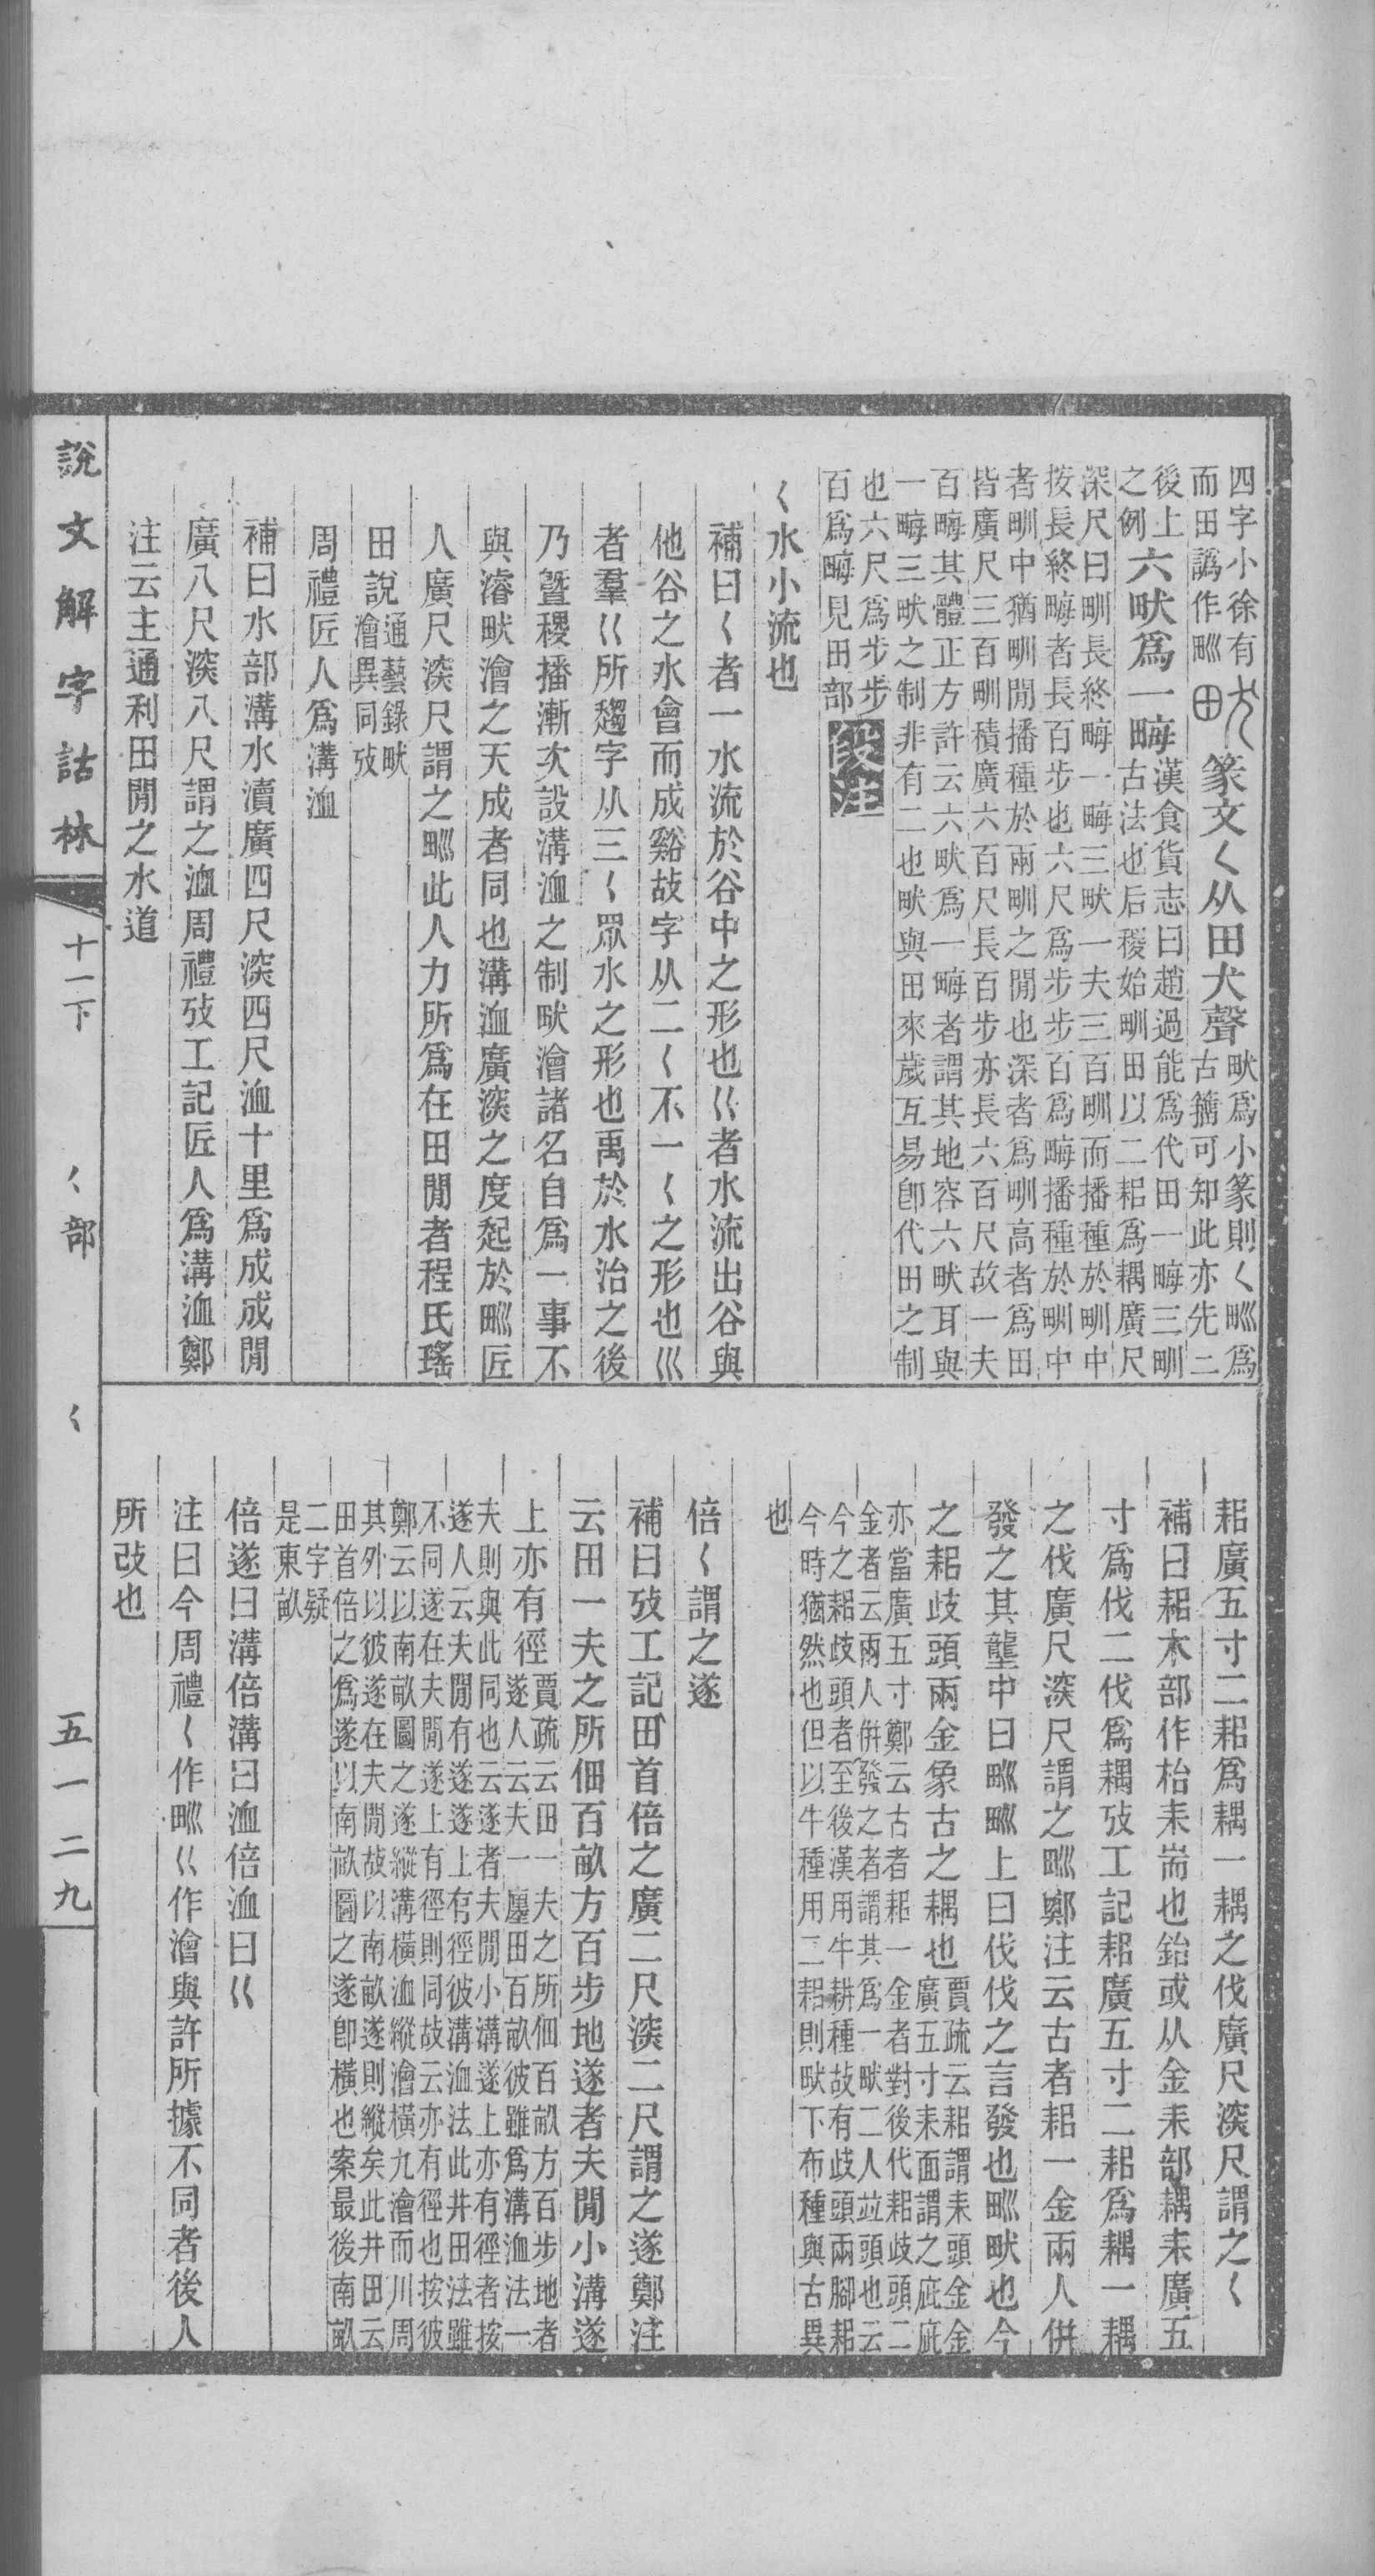 四字小徐有
而田譌作甽
𤰝篆文〈从田犬聲
畎爲小篆則〈甽爲
古籒可知此亦先二
後上
之例
六畎爲一畮
漢食貨志曰趙過能爲代田一畮三甽
古法也后稷始甽田以二耜爲耦廣尺
深尺曰甽長終畮一畮三畎一夫三百甽而播種於甽中
按長終畮者長百步也六尺爲步步百爲畮播種於甽中
者甽中猶甽閒播種於兩甽之閒也深者爲甽高者爲田
皆廣尺三百甽積廣六百尺長百步亦長六百尺故一夫
百畮其體正方許云六畎爲一畮者謂其地容六畎耳與
一畮三畎之制非有二也畎與田來歲互易卽代田之制
也六尺爲步步
百爲畮見田部
段注
〈水小流也
補曰〈者一水流於谷中之形也巜者水流出谷與
他谷之水會而成谿故字从二〈不一〈之形也巛
者羣巜所趨字从三〈眾水之形也禹於水治之後
乃曁稷播漸次設溝洫之制畎澮諸名自爲一事不
與濬畎澮之天成者同也溝洫廣深之度起於甽匠
人廣尺深尺謂之甽此人力所爲在田閒者程氏瑤
田說
通藝錄畎
澮異同攷
周禮匠人爲溝洫
補曰水部溝水瀆廣四尺深四尺洫十里爲成成閒
廣八尺深八尺謂之洫周禮攷工記匠人爲溝洫鄭
注云主通利田閒之水道
耜廣五寸二耜爲耦一耦之伐廣尺深尺謂之〈
補曰耜木部作枱耒耑也鈶或从金耒部耦耒廣五
寸爲伐二伐爲耦攷工記耜廣五寸二耜爲耦一耦
之伐廣尺深尺謂之甽鄭注云古者耜一金兩人併
發之其壟中曰甽甽上曰伐伐之言發也甽畎也今
之耜歧頭兩金象古之耦也
賈疏云耜謂耒頭金金
廣五寸耒面謂之庛庛
亦當廣五寸鄭云古者耜一金者對後代耜歧頭二
金者云兩人併發之者謂其爲一畎二人竝頭也云
今之耜歧頭者至後漢用牛耕種故有歧頭兩腳耜
今時猶然也但以牛種用二耜則畎下布種與古異
也
倍〈謂之遂
補曰攷工記田首倍之廣二尺深二尺謂之遂鄭注
云田一夫之所佃百畝方百步地遂者夫閒小溝遂
上亦有徑
賈疏云田一夫之所佃百畝方百步地者
遂人云夫一廛田百畝彼雖爲溝洫法一
夫則與此同也云遂者夫閒小溝遂上亦有徑者按
遂人云夫閒有遂遂上有徑彼溝洫法此井田法雖
不同遂在夫閒遂上有徑則同故云亦有徑也按彼
鄭云以南畝圖之遂縱溝橫洫縱澮橫九澮而川周
其外以彼遂在夫閒故以南畝遂則縱矣此井田云
田首倍之爲遂以南畝圖之遂卽橫也案最後南畝
二字疑
是東畝
倍遂曰溝倍溝曰洫倍洫曰巜
注曰今周禮〈作甽巜作澮與許所據不同者後人
所改也
說文解字詁林
十一下
〈部
〈
五一二九